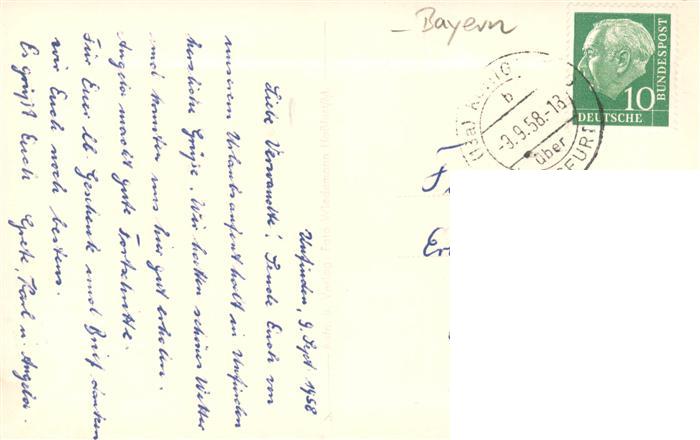 Bayern
BUNDESPOST
10
DEUTSCHE
-9.9.58-18
b
über
Unfinden, 9. Sept. 1958
Liebe Verwandte! Sende Euch von
unserem Urlaubsaufenthalt in Unfinden
herzliche Grüße. Wir hatten schönes Wetter
und konnten uns hier gut erholen.
Angela macht gute Fortschritte.
Für Euer lb. Geschenk und Brief danken
wir Euch noch bestens.
Es grüßt Euch Grete, Karl u. Angela.